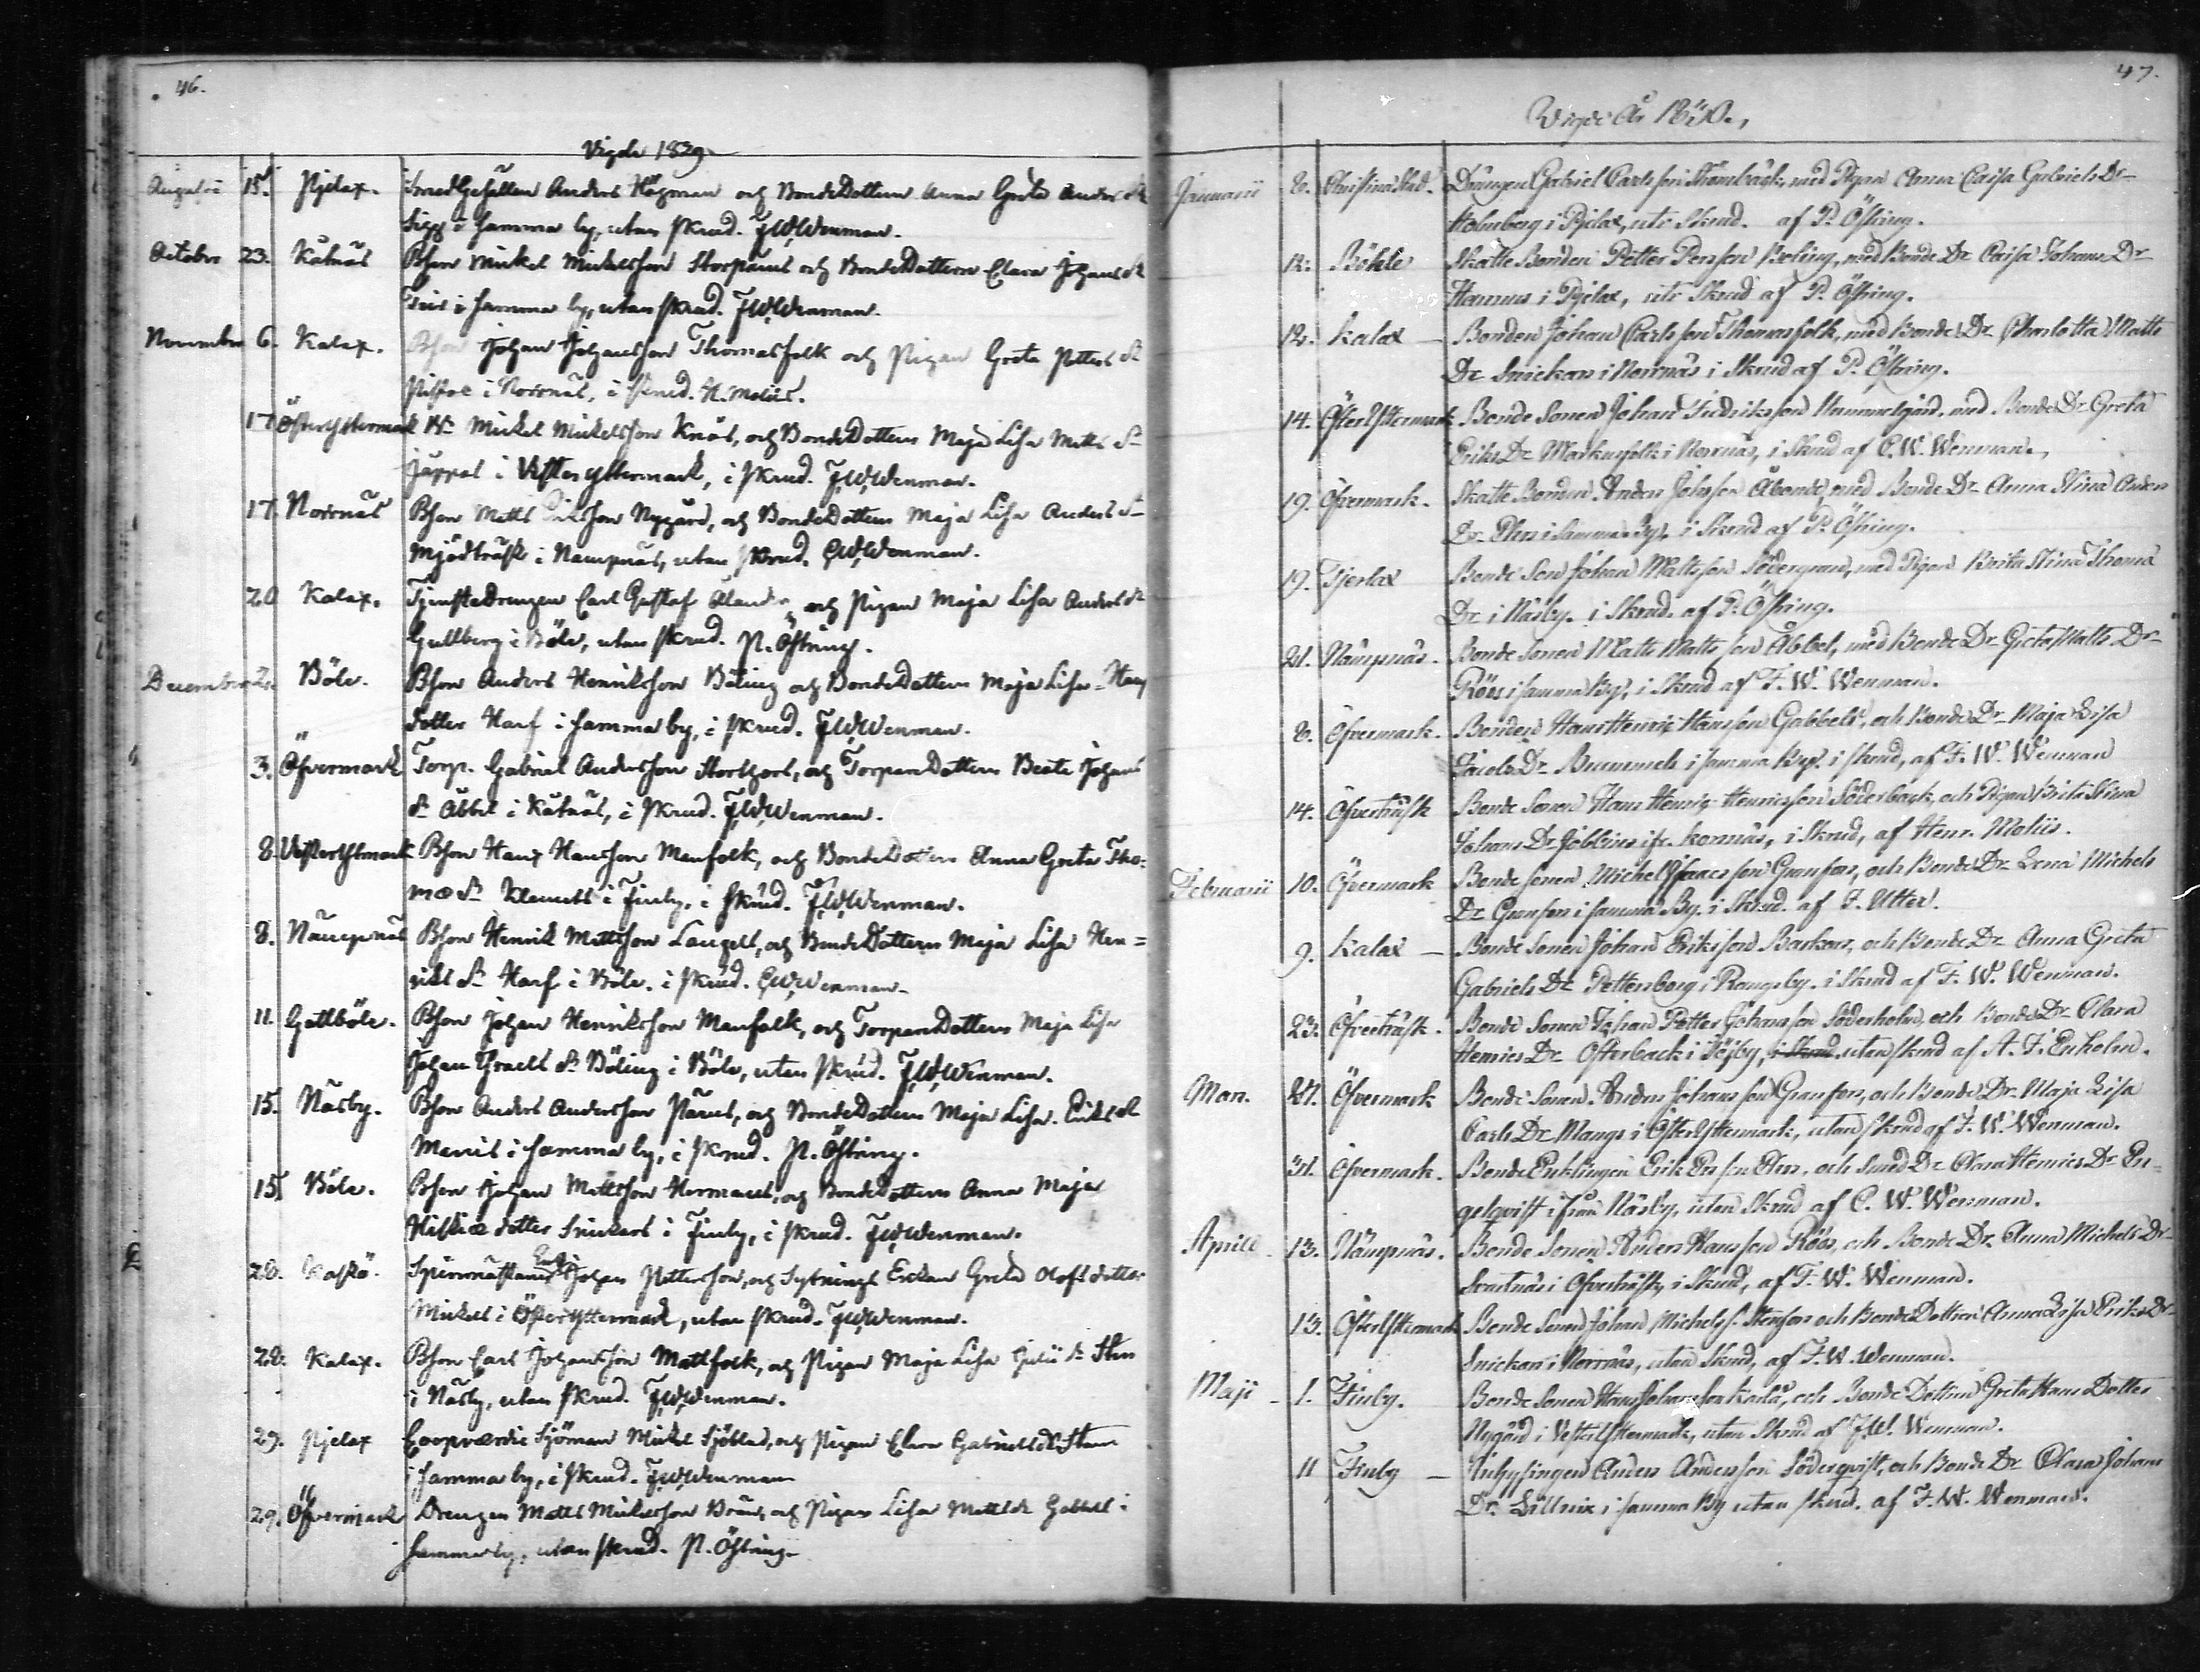 46.
Vigde 1829
Augusti 15. Pjelax. Smedgesällen Anders Högman och BondeDottern Anna Greta Anders Dr
Sigg i samma by, utan skrud. F,W,Wenman.
October 23. Kåtnäs Bson Mickel Mickelsson Storpåns och BondeDottern Clara Johans Dr
i samma by, utan skrud. F,W,Wenman.
November 6. Kalax. Bson Johan Johansson Thomasfolk och Pigan Greta Petters Dr
i Norrnäs, i skrud. H. Moliis.
17 Österyttermark Bn Mickel Mickelsson Knös, och BondeDottern Maja Lisa Matts Dr
Jåppel i Vesteryttermark, i skrud. F,W,Wenman.
17. Norrnäs Bson Matts Eriksson Nygård, och BondeDottern Maja Lisa Anders Dr
Mjödträsk i Nämpnäs, utan skrud. C,W,Wenman.
20 Kalax. Tjenstedrengen Carl Gustaf Åland och Pigan Maja Lisa Anders Dr
Gullberg i Böle, utan skrud. P. Östring.
December 2. Böle. Bson Anders Henriksson Böling och BondeDottern Maja Lisa Hans
dotter Harf i samma by, i skrud. F,W,Wenman.
3. Öfvermark Torp. Gabriel Andersson Storthors, och TorpareDottern Beata Johans
Dr Åbbel i Kåtnäs, i skrud. F,W,Wenman.
8. Vesterytmark Bson Hans Hansson Manfolk, och BondeDottern Anna Greta Tho-
mæ Dr Klemets i Finby, i skrud. F,W,Wenman.
8. Nämpnäs Bson Henrik Mattsson Långell, och BondeDottern Maja Lisa Hen-
riks Dr Harf i Böle, i skrud. C,W,Wenman.
11. Gottböle. Bson Johan Henriksson Manfolk, och TorpareDottern Maja Lisa
Johan Israels Dr Böling i Böle, utan skrud. F,W,Wenman.
15. Näsby. Bson Anders Andersson Påvals, och BondeDottern Maja Lisa Eriks Dr
i samma by, i skrud. P. Östring.
15. Böle. Bson Johan Mattsson Hermans, och BondeDottern Anna Maja
dotter Snickars i Finby, i skrud. F,W,Wenman.
28. Kaskö. Johan Pettersson, och Sytnings Enkan Greta Olofs dotter
Mickels i Österyttermark, utan skrud. F,W,Wenman.
28. Kalax. Bson Carl Johansson Mattfolk, och Pigan Maja Lisa Julii Dr Sten
i Näsby, utan skrud. F,W,Wenman.
29. Pjelax Coopværdie Sjöman Mickel Sjöblad, och Pigan Clara Gabriels Dr Sten
i samma by, i skrud. F,W,Wenman
29. Öfvermark Drengen Matts Mickelsson Brän, och Pigan Lisa Matts Dr Gabbels i
samma by, utan skrud. P. Östring
47.
Vigde År 1830.
Januarii 8. ChristinæStad. Drängen Gabriel Carlsson Strömbäck, med Pigan Anna Caisa Gabriels Dr
Holmberg i Pjelax, utv Skrud. af P. Östring.
12. Böhle Skatte Bonden Petter Persson Böling, med Bonde Dr Caisa Johans Dr
Hannus i Pjelax, utv Skrud af P. Östring.
12. Kalax — Bonden Johan Carlsson Thomasfolk, med Bonde Dr. Charlotta Matts
Dr Snickars i Norrnäs i Skrud af P. Östring.
14. ÖsterYttermark Bonde Sonen Johan Fredriksson Hammelgård, med Bonde Dr. Greta
Eriks Dr Markusfolk i Norrnäs, i Skrud af C. W. Wenman.
19. Öfvermark. Skatte Bonden Anders Johnsson Åbonde, med Bonde Dr Anna Stina Anders
Dr Ehrs i Samma By, i Skrud af P. Östring.
19. Tjerlax Bonde Son Johan Mattsson Södergran, med Pigan Brita Stina Thomæ
Dr. i Näsby. i Skrud. af P. Östring.
21. Nämpnäs. Bonde Sonen Matts Mattsson Åbbel, med Bonde Dr. Greta Matts Dr
Röös i samma By, i Skrud af F. W. Wenman.
8. Öfvermark. Bonden Hans Henric Hansson Gabbels, och Bonde Dr Maja Lisa
Jacobs Dr i samma By, i skrud, af F. W. Wenman
14. Öfverträsk Bonde Sonen Hans Henric Henricsson Söderback, och Pigan Brita Stina
Johans Dr ifr. Korsnäs, i Skrud, af Henr. Moliis.
Februarii 10. Öfvermark Bonde sonen Michel Isacsson Granfors, och Bonde Dr Lena Michels
Dr Granfors i samma By. i Skrud. af J. Utter.
9. Kalax — Bonde Sonen Johan Eriksson Backars, och Bonde Dr. Anna Greta
Gabriels Dr Pettersborg i Rangsby. i Skrud af F. W. Wenman.
23. Öfverträsk. Bonde Sonen Johan Petter Johansson Söderholm, och Bonde Dr Clara
Henrics Dr Österback i Töjby, i Skrud utan skrud af A. F. Enholm.
Mars. 21. Öfvermark Bonde Sonen Anders Johansson Granfors, och Bonde Dr. Maja Lisa
Carls Dr Mangs i ÖsterYttermark, utan skrud af F. W. Wenman.
31. Öfvermark. Bonde Enklingen Erik Ersson Ehrs, och Smed Dr Clara Henrics Dr En-
gelqvist ifrån Näsby, utan Skrud af C. W. Wenman.
Aprill 13. Nämpnäs. Bonde Sonen Anders Hansson Röös, och Bonde Dr. Anna Michels Dr
i Öfverträsk, i Skrud, af F. W. Wenman.
13. ÖsterYttermark Bonde Sonen Johan Michels S. Stenfors och Bonde Dottren Anna Lisa Eriks Dr
Snickars i Norrnäs, utan Skrud, af F. W. Wenman.
Maji 1. Finby. Bonde Sonen Hans Johansson Karls, och Bonde Dottren Greta Hans Dotter
Nygård i VesterYttermark, utan Skrud af F. W. Wenman.
11 Finby — Inhysingen Anders Andersson Söderqvist, och Bonde Dr Clara Johans
Dr. Lillnix i samma By utan skrud. af F. W. Wenman.